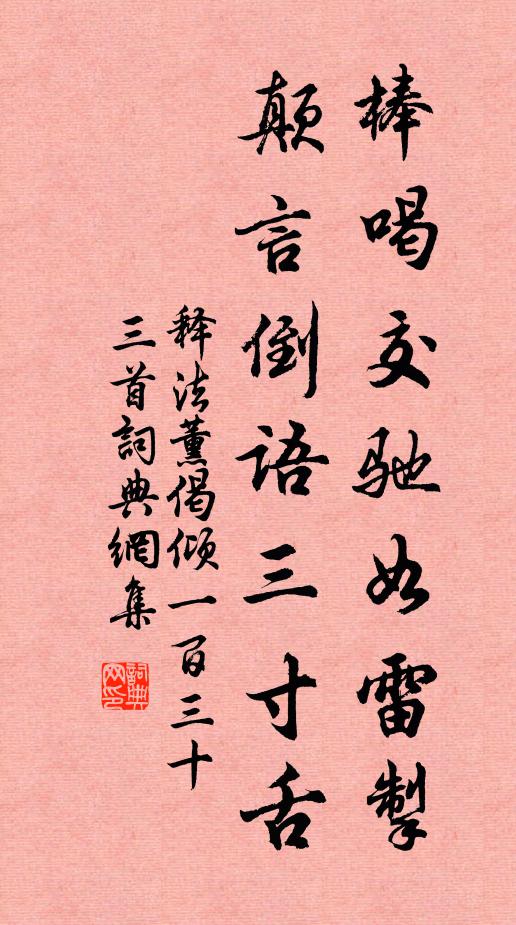 棒喝交驰如雷掣
颠言倒语三寸舌
释法薰偈颂一百三十
三首詞典網集
詞典网印